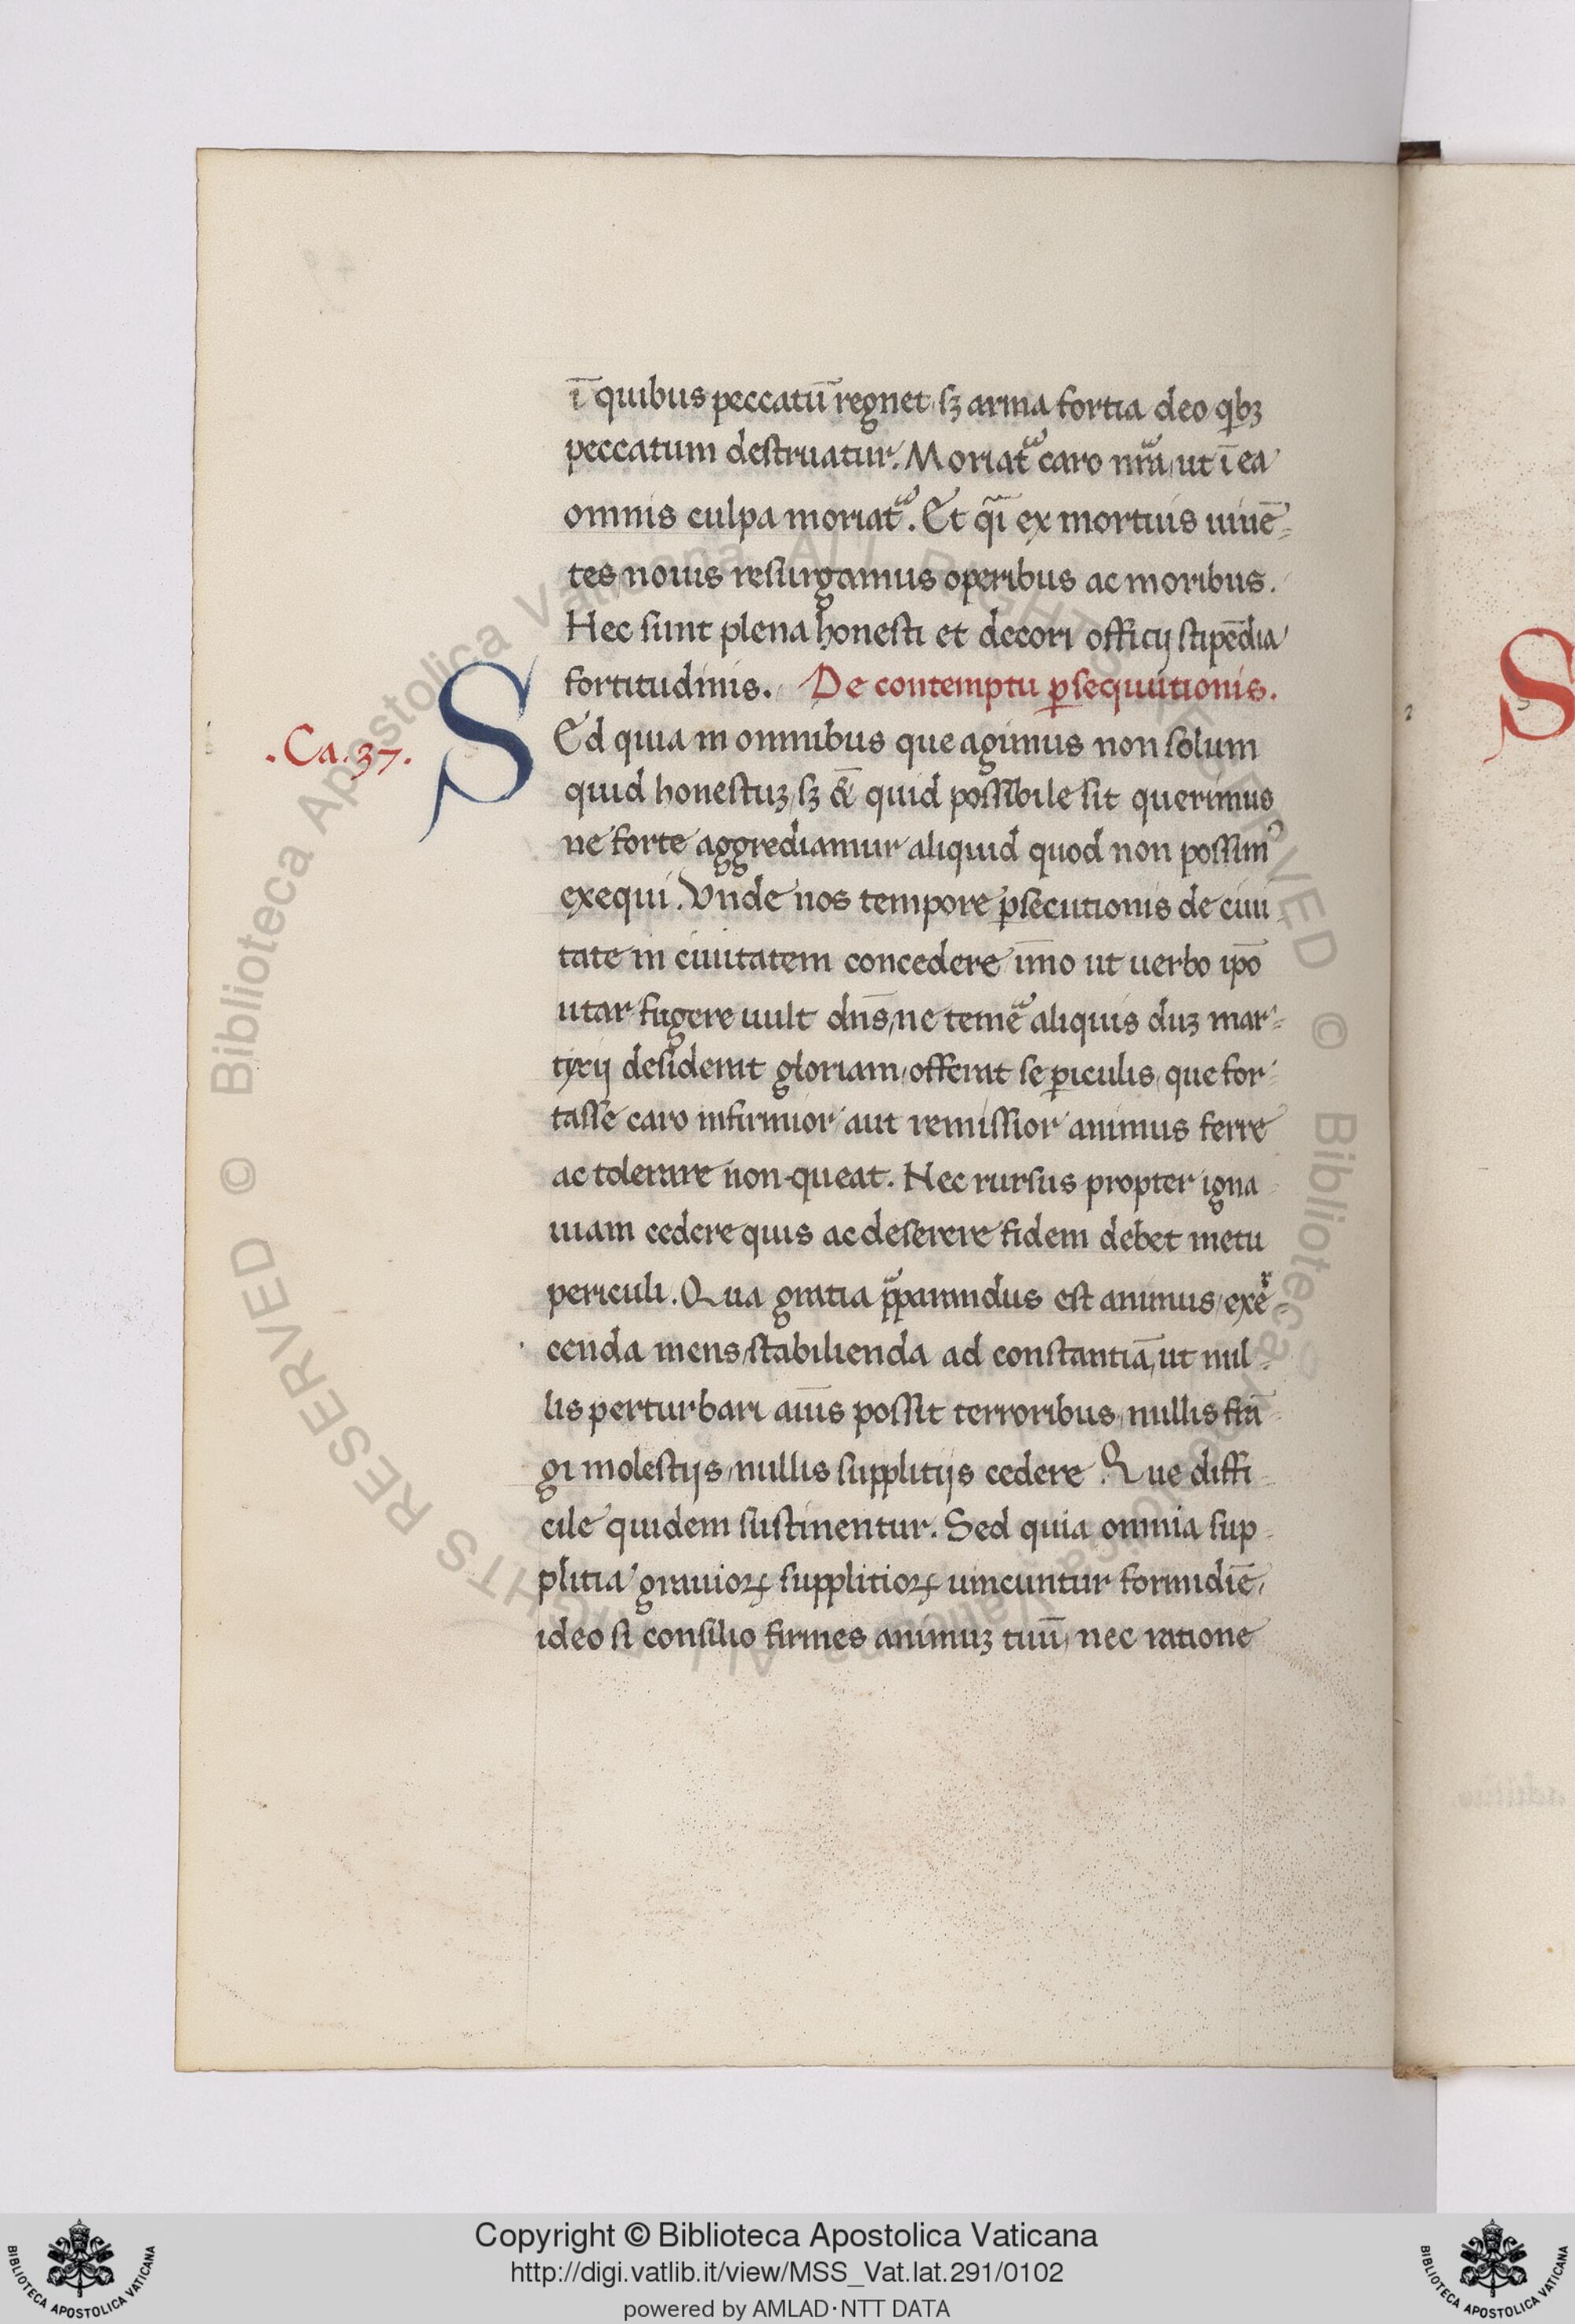 ī quibus peccatū regnet, sꝫ arma fortia deo qͥbꝫ
peccatum destruatur. Moriat᷑ caro nr̄a, ut ī ea
omnis culpa moriat᷑. Et qͣi ex mortuis uiuē=
tes nouis resurgamus operibus ac moribus.
Hec sunt plena honesti et decori officij stipēdia
fortitudinis. De contemptu ꝑsequutionis.
.Ca.37.
SEd quia in omnibus que agimus non solum
quid honestuꝫ, sꝫ &̄ quid possibile sit querimus
ne forte aggrediamur aliquid quod non possimꝰ
exequi. Vnde nos tempore ꝑsecutionis de ciui
tate in ciuitatem concedere īmo ut uerbo ip̄o
utar fugere uult dn̄s, ne temē aliquis duꝫ mar=
tyrij desiderat gloriam, offerat se ꝑiculis, que for
tasse caro infirmior aut remissior animus ferre
ac tolerare non queat. Nec rursus propter igna
uiam cedere quis ac deserere fidem debet metu
periculi. Qua gratia p̄ꝑandus est animus, exer=
cenda mens, stabilienda ad constantiā, ut nul=
lis perturbari aīus possit terroribus, nullis frā
gi molestijs, nullis supplitijs cedere. Que diffi
cile quidem sustinentur. Sed quia omnia sup
plitia grauioꝝ supplitioꝝ uincuntur formidīe,
ideo si consilio firmes animuꝫ tuū, nec ratione
S
© Biblioteca Apostolica Vaticana ALL RIGHTS RESERVED © Biblioteca Apostolica Vaticana ALL RIGHTS RESERVED
BIBLIOTECA APOSTOLICA VATICANA
Copyright © Biblioteca Apostolica Vaticana
http://digi.vatlib.it/view/MSS_Vat.lat.291/0102
powered by AMLAD·NTT DATA
BIBLIOTECA APOSTOLICA VATICANA